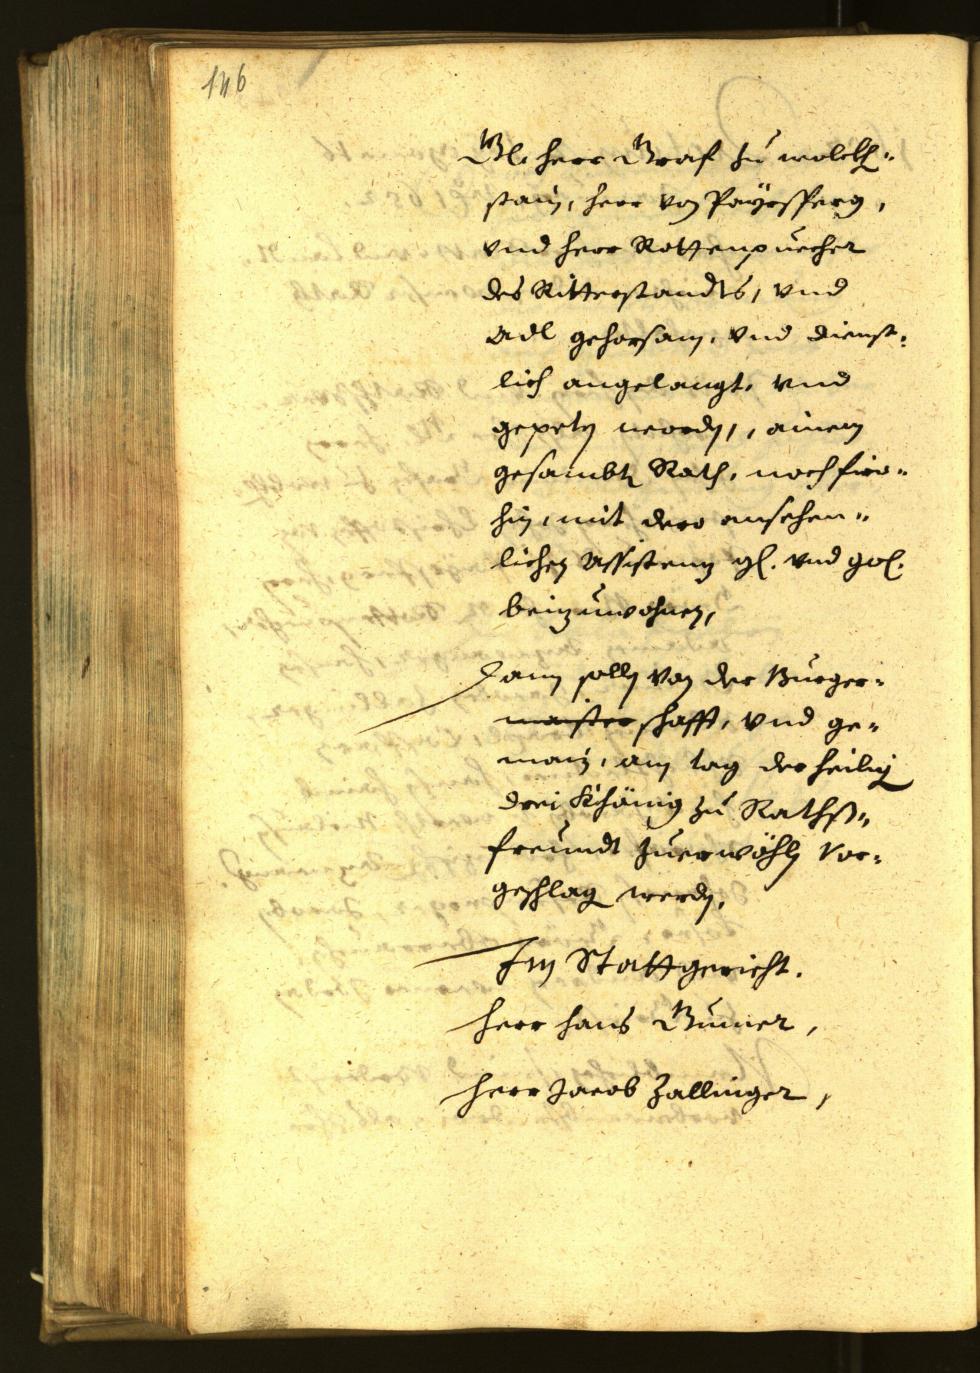 146
Bl: herr Graf zu wolckh-
stain, herr von Payrsperg,
vnd herr Rottenpuecher
des Ritterstandts, vnd
Adl gehorsam, vnd dienst-
lich angelangt, vnd
gepetn wordn, ainem
gesambtn Rath, noch fier-
hin, mit dero ansehen-
lichen Assistenz gl. vnd gol.
beinzuwohnen,
Dann solln von der Burger-
maister schafft, vnd ge-
main, am tag der heilig
drei Khönig zu Raths-
freundt zuerwöhln vor-
geschlag werdn.
Im Stattgericht.
Herr Hans Gumer,
Herr Jacob Zallinger,